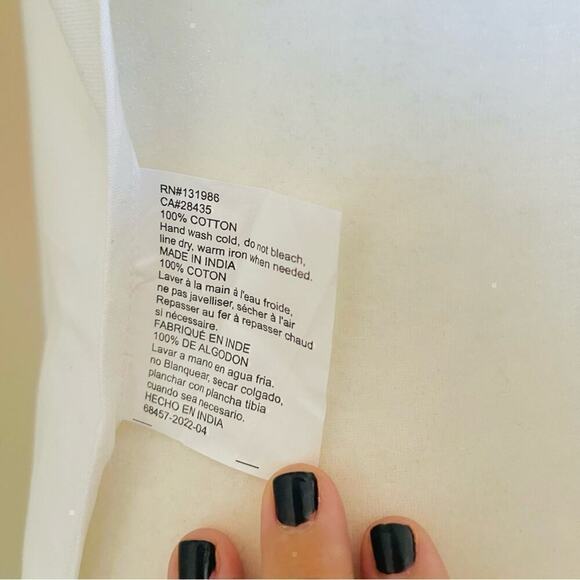 RN#131986
CA#28435
100% COTTON
Hand wash cold, do not bleach,
line dry, warm iron when needed.
MADE IN INDIA
100% COTON
Laver à la main à l'eau froide,
ne pas javelliser, sécher à l'air
Repasser au fer à repasser chaud
si nécessaire.
FABRIQUÉ EN INDE
100% DE ALGODON
Lavar a mano en agua fria.
no Blanquear, secar colgado,
planchar con plancha tibia
cuando sea necesario.
HECHO EN INDIA
68457-2022-04